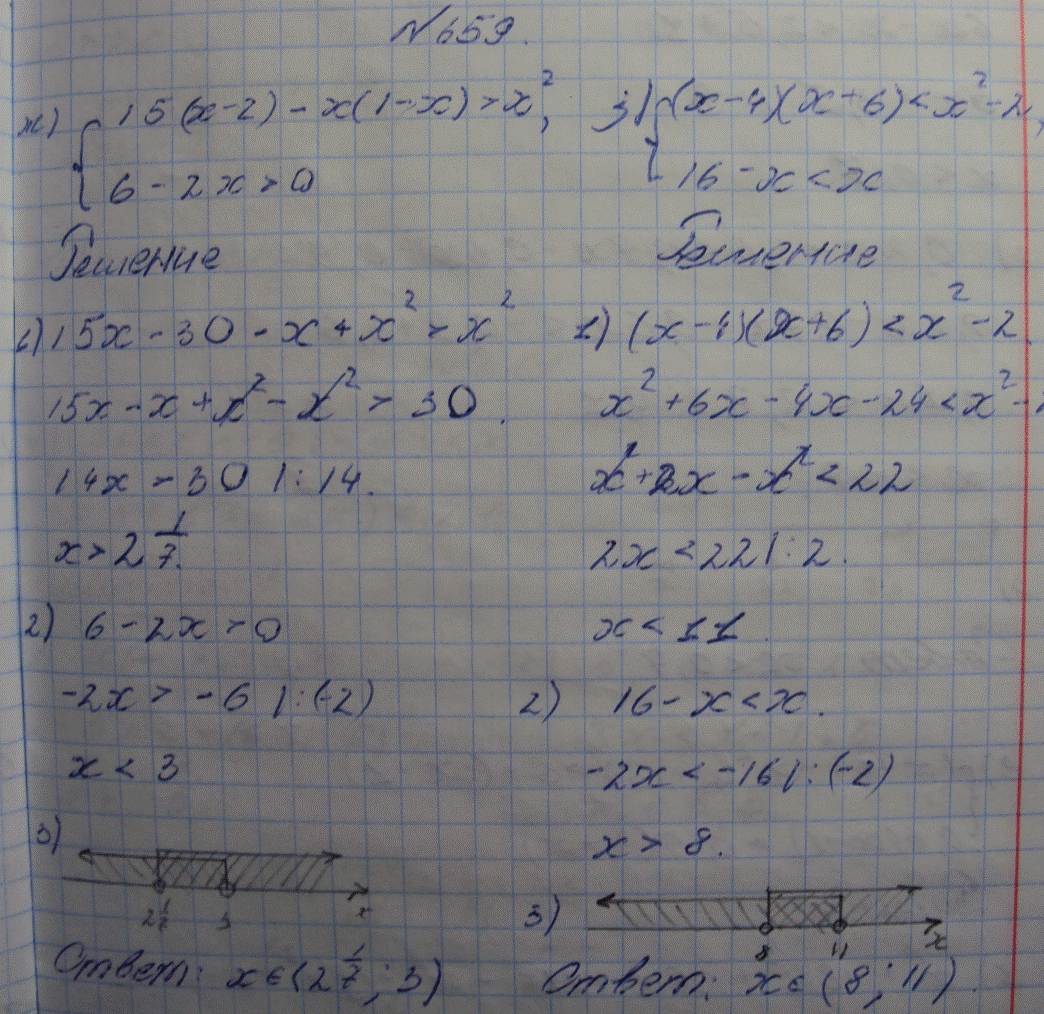 №659.
ж) { 15(x-2) - x(1-x) > x²,
6 - 2x > 0
Решение
1) 15x - 30 - x + x² > x²
15x - x + x² - x² > 30.
14x > 30 |: 14.
x > 2 1/7.
2) 6 - 2x > 0
-2x > -6 |: (-2)
x < 3
3)
2 1/7 3 x
Ответ: x ∈ (2 1/7; 3)
з) { (x-4)(x+6) < x² - 2,
16 - x < x
Решение
1) (x-4)(x+6) < x² - 2.
x² + 6x - 4x - 24 < x² - 2
x² + 2x - x² < 22
2x < 22 |: 2.
x < 11.
2) 16 - x < x.
-2x < -16 |: (-2)
x > 8.
3)
8 11 x
Ответ: x ∈ (8; 11).